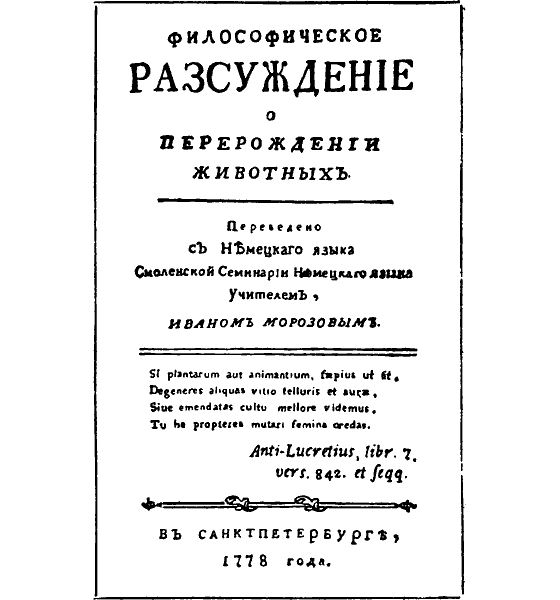 ФИЛОСОФИЧЕСКОЕ
РАЗСУЖДЕНІЕ
О
ПЕРЕРОЖДЕНІИ
ЖИВОТНЫХЪ.
Переведено
съ Нѣмецкаго языка
Смоленской Семинаріи Нѣмецкаго языка
учителемъ,
ИВАНОМЪ МОРОЗОВЫМЪ.
Si plantarum aut animantium, ſæpius ut fit,
Degeneres aliquas vitio telluris et auræ,
Siue emendatas cultu meliore videmus,
Tu ne propterea mutari ſemina credas.
Anti-Lucretius, libr. 7.
vers. 842. et ſeqq.
ВЪ САНКТПЕТЕРБУРГѢ,
1778 года.